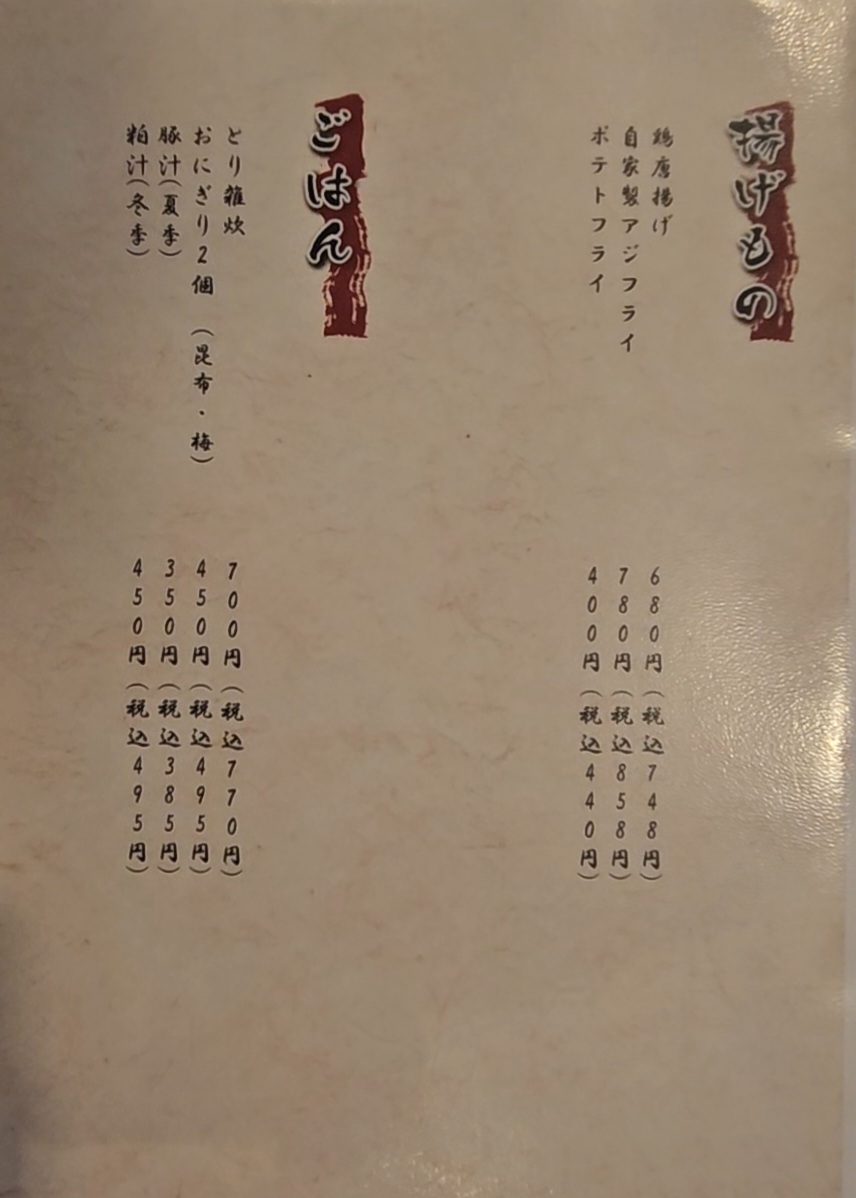 揚げもの
鶏唐揚げ 680円(税込748円)
自家製アジフライ 780円(税込858円)
ポテトフライ 400円(税込440円)
ごはん
とり雑炊 700円(税込770円)
おにぎり2個 (昆布・梅) 450円(税込495円)
豚汁(夏季) 350円(税込385円)
粕汁(冬季) 450円(税込495円)